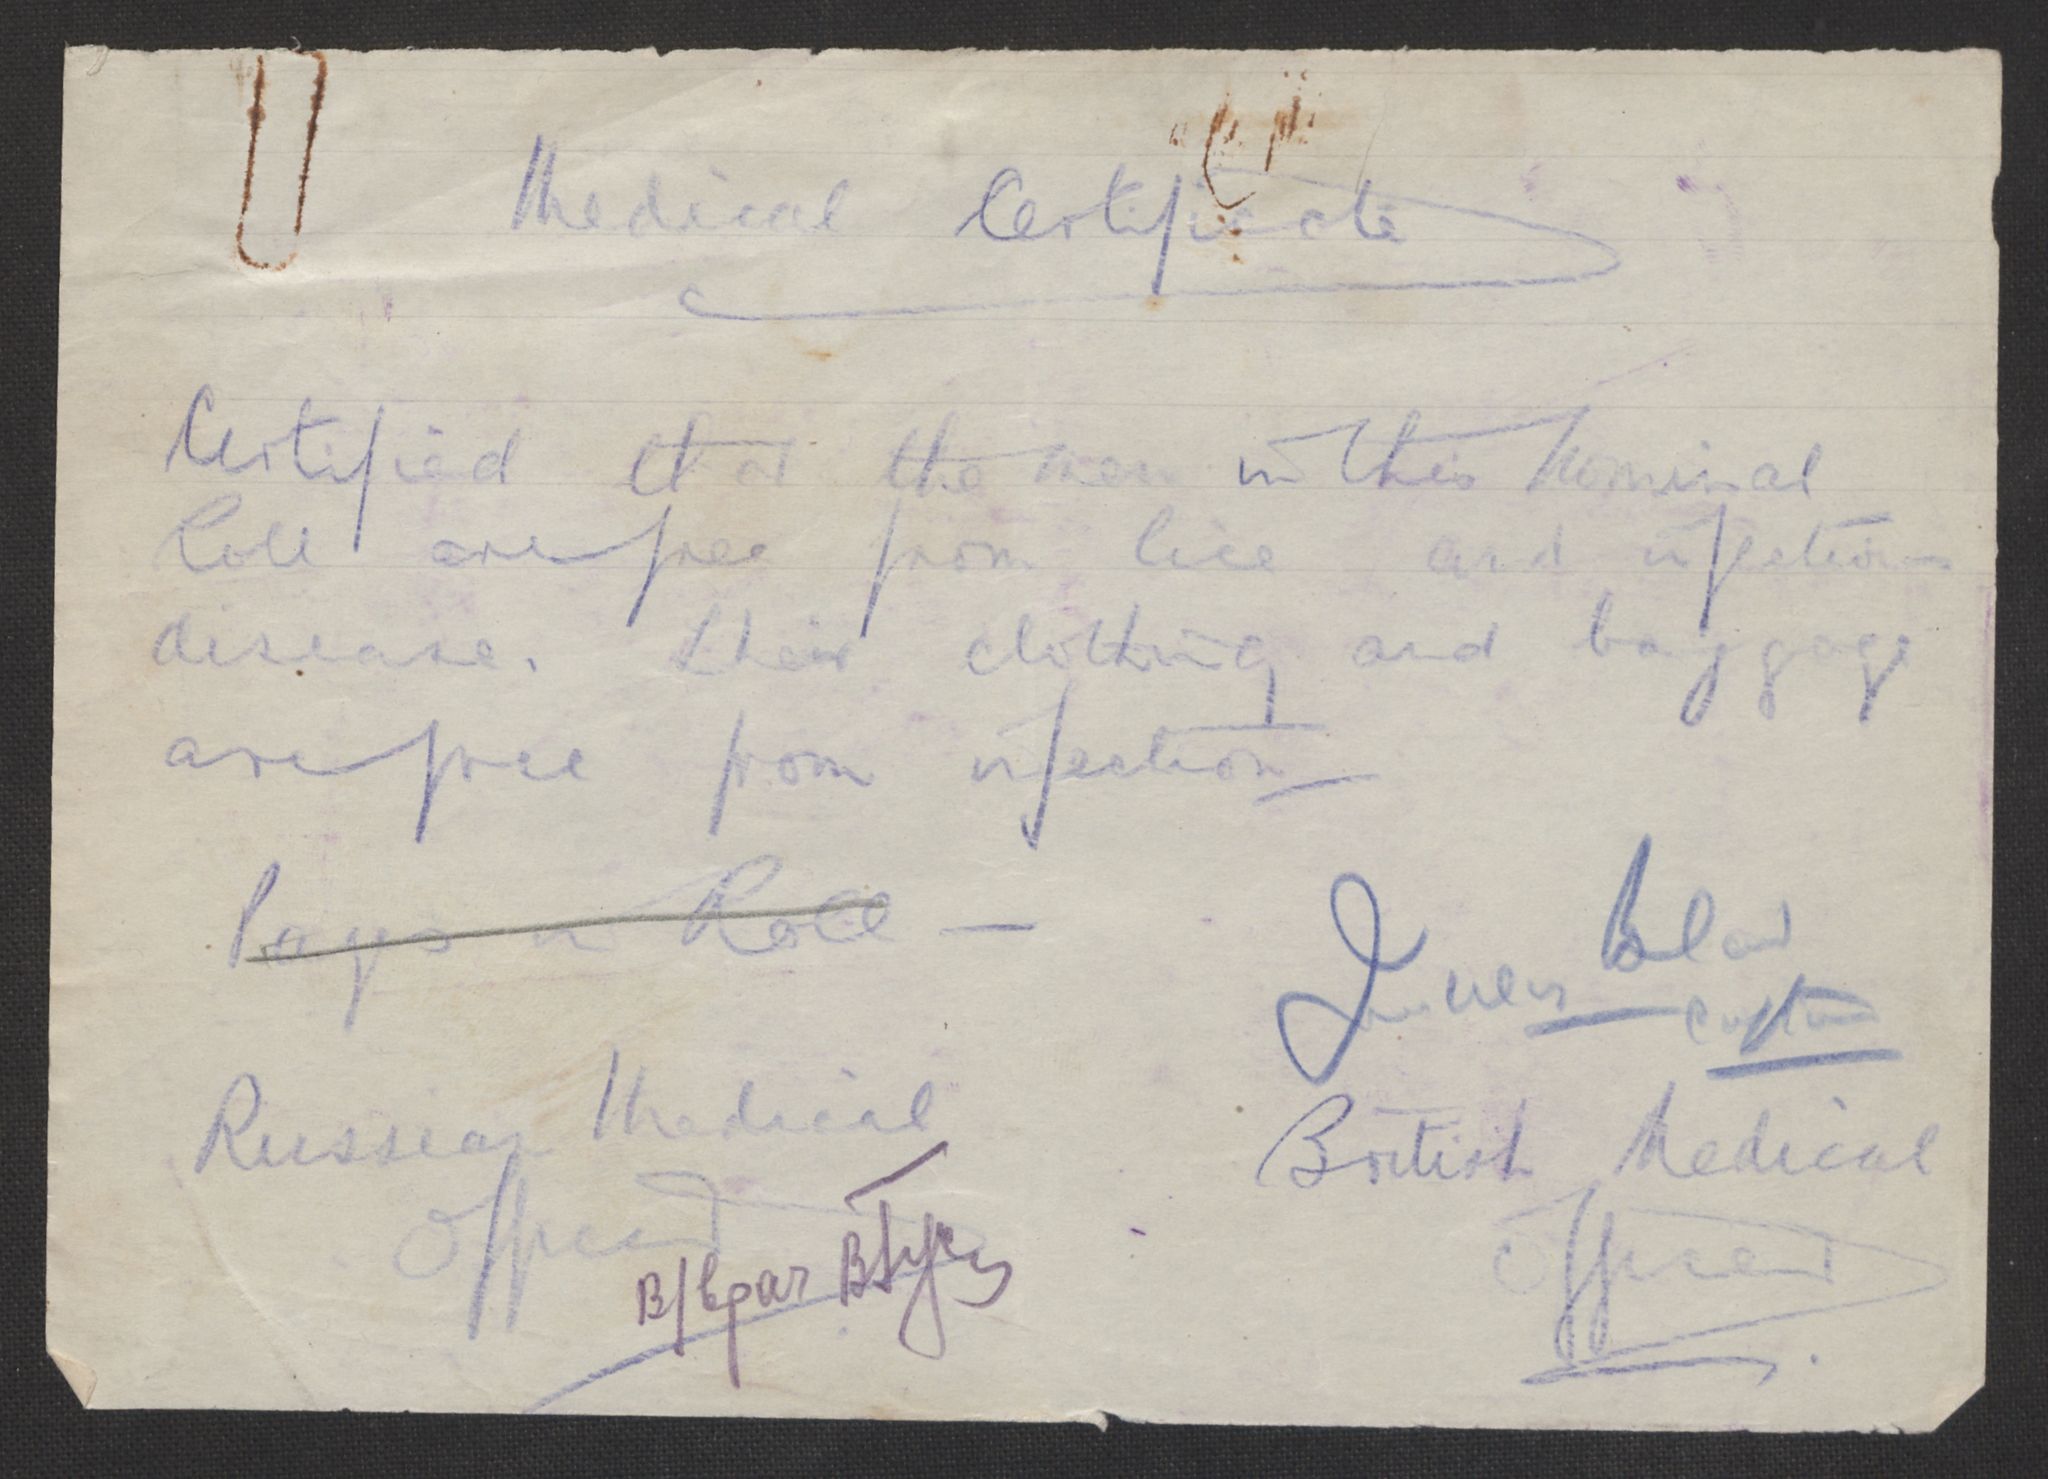 Medical Certificate
Certified that the men in this Nominal
Roll are free from lice and infectious
disease. their clothing and baggage
are free from infection
Pages in Roll —
Blair
Captain
Russian Medical
Officer
British Medical
Officer